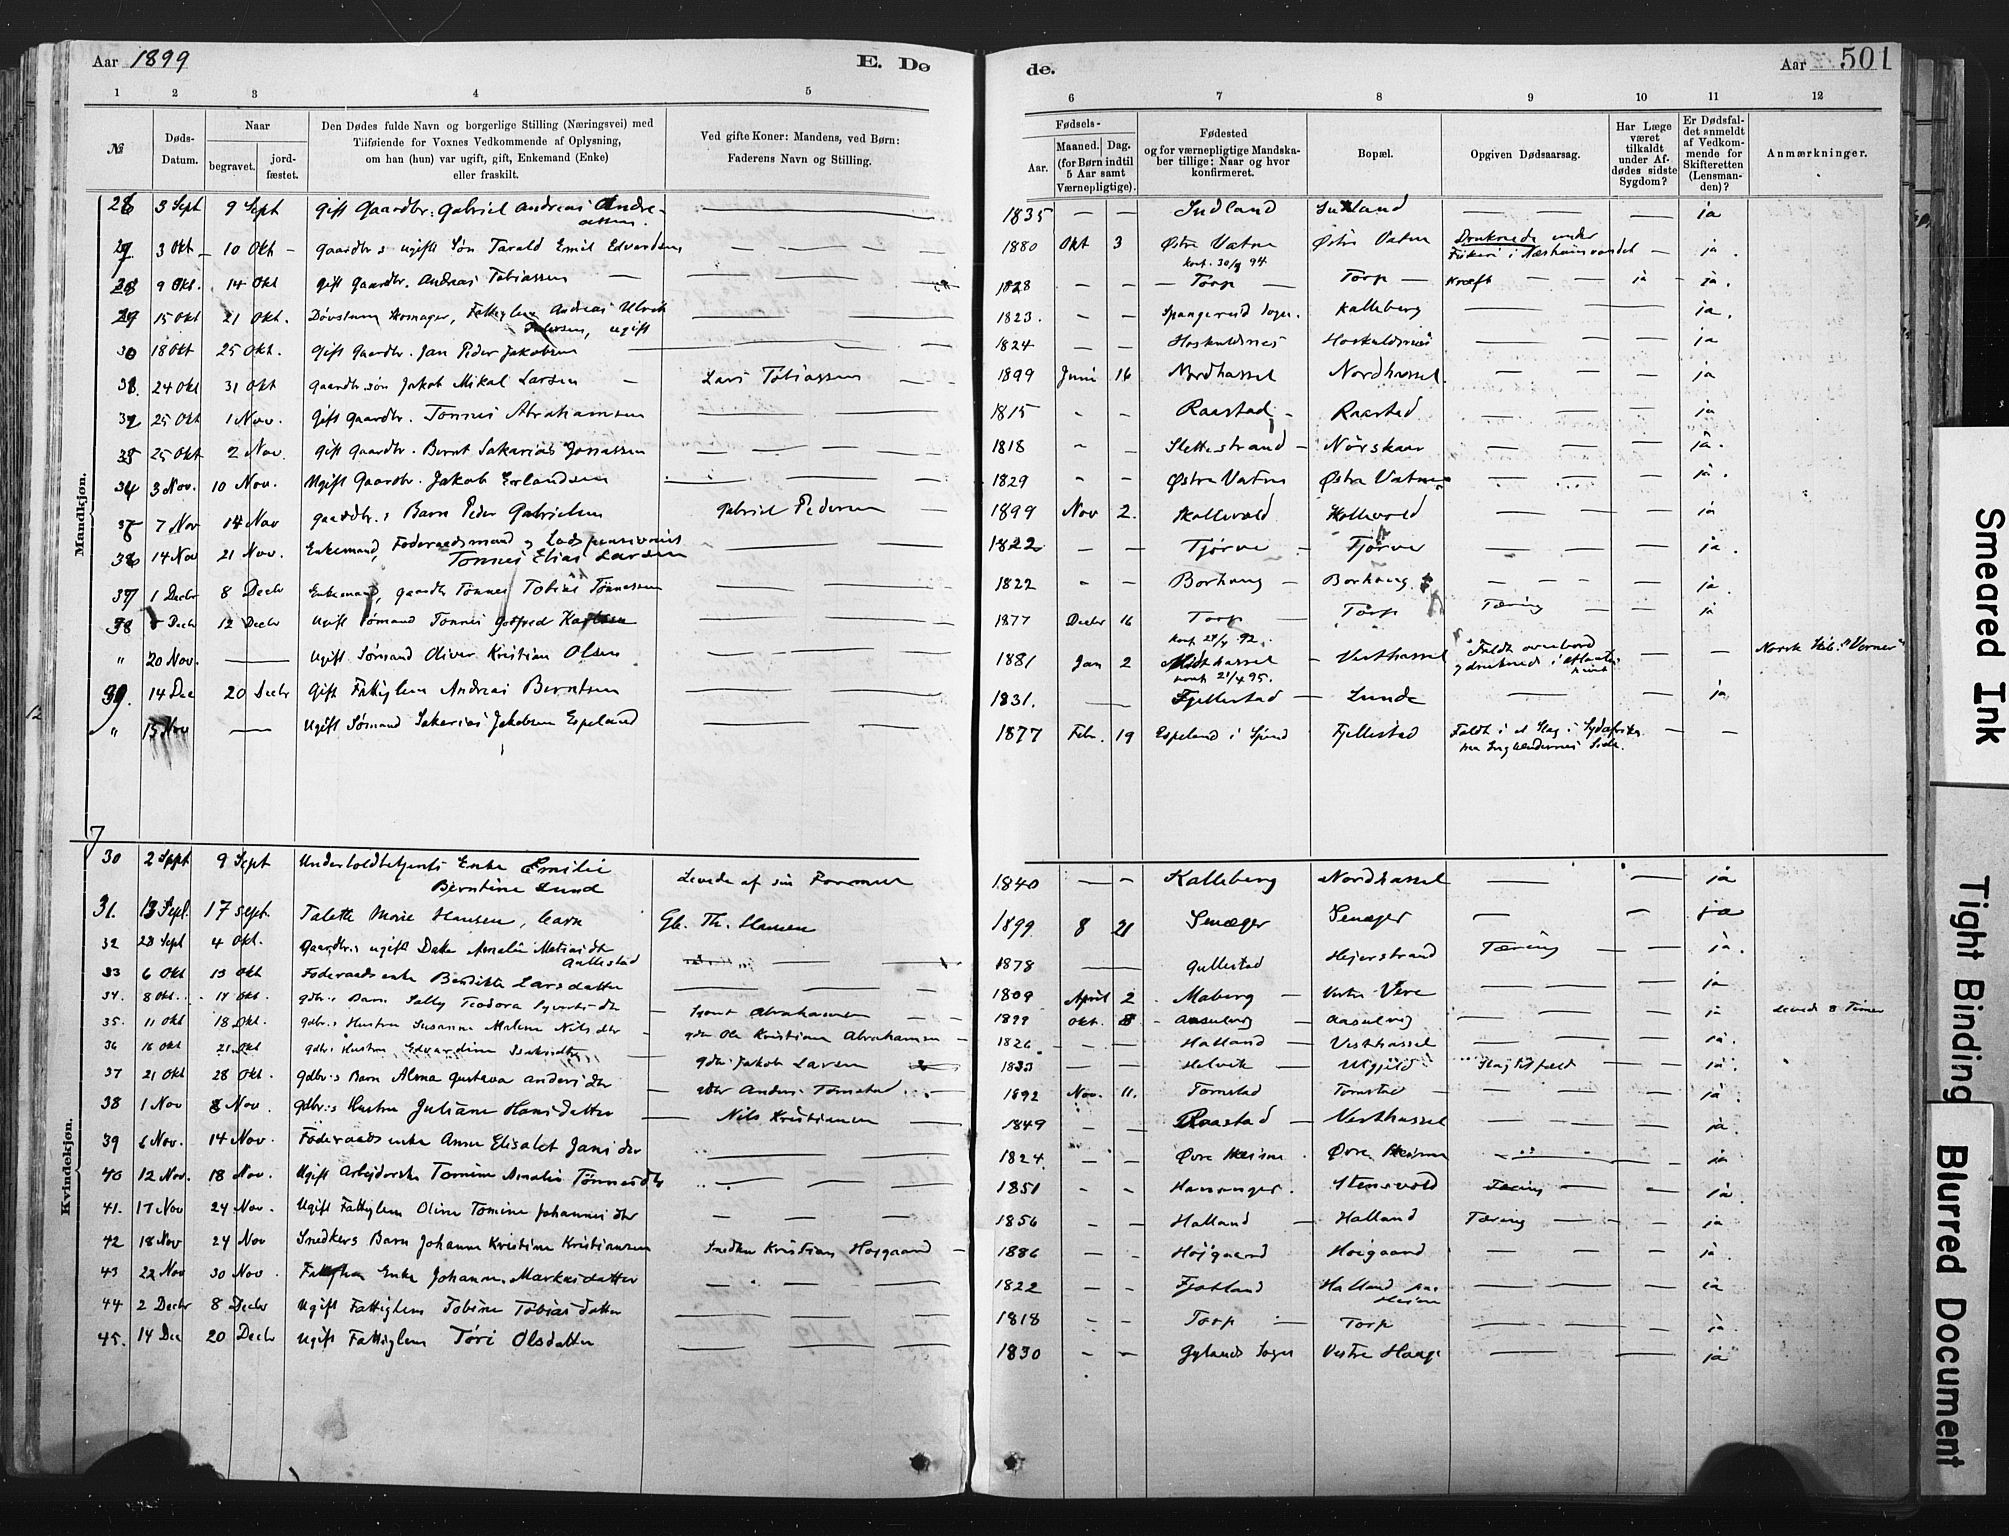 Aar 1899
E. De
de.
Aar 501
1 2 3 4 5
6 7 8 9 10 11 12
№
Døds-Datum.
Naar
begravet.
jord-fæstet.
Den Dødes fulde Navn og borgerlige Stilling (Næringsvei) med
Tilføiende for Voxnes Vedkommende af Oplysning,
om han (hun) var ugift, gift, Enkemand (Enke)
eller fraskilt.
Ved gifte Koner: Mandens, ved Børn:
Faderens Navn og Stilling.
Fødsels-
Aar.
Maaned. Dag.
(for Børn indtil
5 Aar samt
Værnepligtige).
Fødested
og for værnepligtige Mandska-
ber tillige: Naar og hvor
konfirmeret.
Bopæl.
Opgiven Dødsaarsag.
Har Læge
været
tilkaldt
under Af-
dødes sidste
Sygdom?
Er Dødsfal-
det anmeldt
af Vedkom-
mende for
Skifteretten
(Lensman-
den)?
Anmærkninger.
Mandkjøn.
26 3 Sept 9 Sept Gift Gaardbr. Gabriel Andreas Andre-
assen. 1835 — — Indland — — — ja
27 3 Okt 10 Okt Gaardbr:s ugifte Søn Tarald Emil Edvardsen 1880 Okt 3 Østre Vatne Østre Vatne Druknede under
konf. 94 Fiskeri i — ja.
28 9 Okt. 14 Okt Gift Gaardbr. Andreas Tobiassen 1828 — — Torp Torp Kræft ja ja.
29 15 Okt 21 Okt. Døvstum Fattiglem Andreas Ulrik
ugift 1823. — — Spangereid Sogn. Kalleberg — — ja.
30 18 Okt 25 Okt. Gift Gaardbr. Jan Peder Jakobsen 1824 — — — — ja
31. 24 Okt 31 Okt Gaardbr.søn Jakob Mikal Larsen Lars Tobiassen 1899 Juni 16 Nordhassel Nordhassel. — — ja
32 25 Okt 1 Nov. Gift Gaardbr. Tønnes Abrahamsen 1815 — — Raastad Raastad — — ja
33 25 Okt 2 Nov. Gift Gaardbr. Bernt Sakarias Jonassen 1818 — — Slettestrand Nørskaar — — ja.
34 3 Nov. 10 Nov. Ugift Gaardbr. Jakob Erlandsen 1829 — — Østre Vatne Østre Vatne — — ja.
35 7 Nov 14 Nov Gaardbr.s Barn Peder Gabrielsen Gabriel Pedersen 1899 Nov 2. — — ja
36 14 Nov 21 Nov. Enkemand, Føderaadsmand og Lodspensionist
Tønnes Elias Larsen 1822 — — Tjørve Tjørve — — ja.
37 1 Decbr 8 Decbr Enkemand, Gaardbr Tønnes Tobias Tønnessen 1822 — — Borhaug Borhaug. — — ja.
38 Decbr 12 Decbr Ugift Sømand Tønnes Gotfred 1877 Decbr 16 Torp Torp Tæring — ja
konf. 92.
" 20 Nov. — Ugift Sømand Oliver Kristian Olsen 1881 Jan 2 Midthassel Vesthassel Faldt overbord
konf. 21/4 95. og druknede i — — Norsk Skib "Verner"
39. 14 Dec 20 Decbr Gift Fattiglem Andreas Berntsen 1831. — Fjellestad Lunde — — ja.
" 15 Nov — Ugift Sømand Sakarias Jakobsen Espeland 1877 Febr. 19 Espeland i Fjellestad Faldt i et Slag i Sydafrika
Englændernes Side. — —
Kvindekjøn.
30 2 Sept 9 Sept Enke Emilie
Berntine Lund Levede af sin Formue 1840 — — Kalleberg Nordhassel — — ja
31. 13 Sept. 17 Sept. Talette Marie Hansen, barn Gb. Th. Hansen 1899 8 21 Snæger Snæger — — ja
32 28 Sept 4 Okt. Gaardbr:s ugifte Datter Amalie
Gullestad 1878 — Gullestad Hejerstrand Tæring — ja.
33 6 Okt 13 Okt Føderaadsenke Bendikte Larsdatter 1809 April 2 Maberg Vestre Vere — — ja
34. 8 Okt. 14 Okt. Gdbr:s Barn Sally Teodora Abrahamsen 1899 Okt. 8 Aasulveg Aasulveg — — ja Levede 8 Timer
35. 11 Okt 18 Okt. Gdbr:s Hustru Susanne Malene Nilsdtr Gdbr Ole Kristian Abrahamsen 1826 — — Halland Vesthassel — — ja.
36 16 Okt 21 Okt Gdbr:s Hustru Edvardine Isaksdtr Gdbr. Jakob Larsen 1833 — — Helvik Slagtilfælde — ja.
37 21 Okt 28 Okt. Gdbr:s Barn Alma Gustava Andersdtr Gdbr Anders Tomstad 1892 Nov. 11. Tomstad Tomstad — ja.
38 1 Nov 8 Nov. Gdbr:s Hustru Juliane Hansdatter Nils Kristiansen 1849 — — Raastad Vesthassel — — ja.
39 6 Nov. 14 Nov. Føderaadsenke Anne Elisabet Jansdtr 1824. — — Øvre Øvre — — ja
40 12 Nov. 18 Nov. Ugift Arbejderske Tomine Amalie Tønnesdtr 1851 — — Hananger. Stensvold Tæring — ja.
41. 17 Nov 24 Nov. Ugift Fattiglem Oline Tomine Johannesdtr 1856 — — Halland Halland Tæring — ja
42 18 Nov 24 Nov Snedkers Barn Johanne Kristine Kristiansen Snedker Kristian Højgaard 1886 — — Højgaard Højgaard — — ja.
43 22 Nov 30 Nov. Fattiglem Enke Johanne Markusdatter 1822 — — Fjotland Halland — — ja
44 2 Decbr 8 Decbr Ugift Fattiglem Tobine Tobiasdatter 1818 — — Torp Torp — — ja.
45. 14 Dec 20 Decbr Ugift Fattiglem Tøri Olsdatter 1830 — — Gylands Sogn Vestre Hauge — — ja
Smeared Ink
Tight Binding
Blurred Document